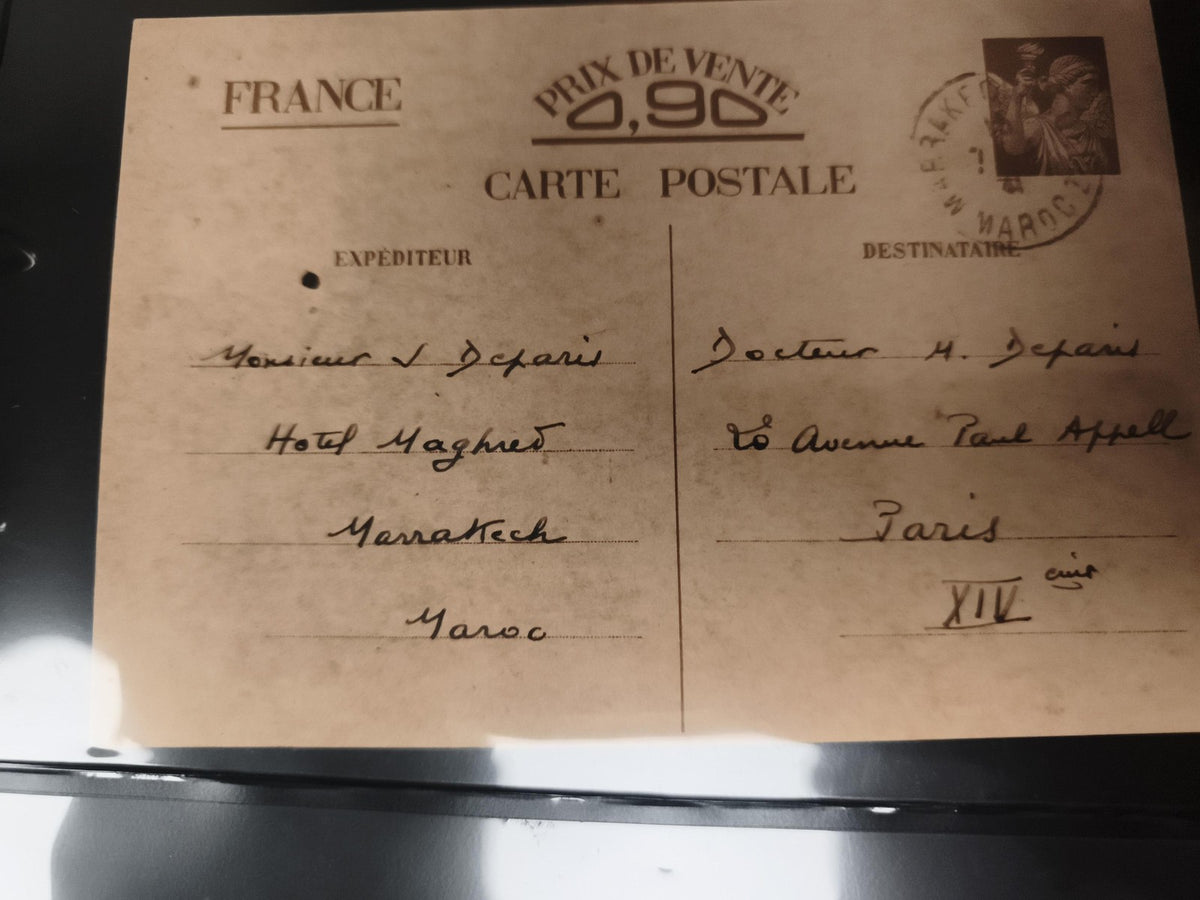 FRANCE
PRIX DE VENTE
0,90
CARTE POSTALE
MARRAKE
MAROC
EXPÉDITEUR
DESTINATAIRE
Monsieur J Deparis
Hotel Maghreb
Marrakech
Maroc
Docteur M. Deparis
Avenue Paul Appell
Paris
XIV